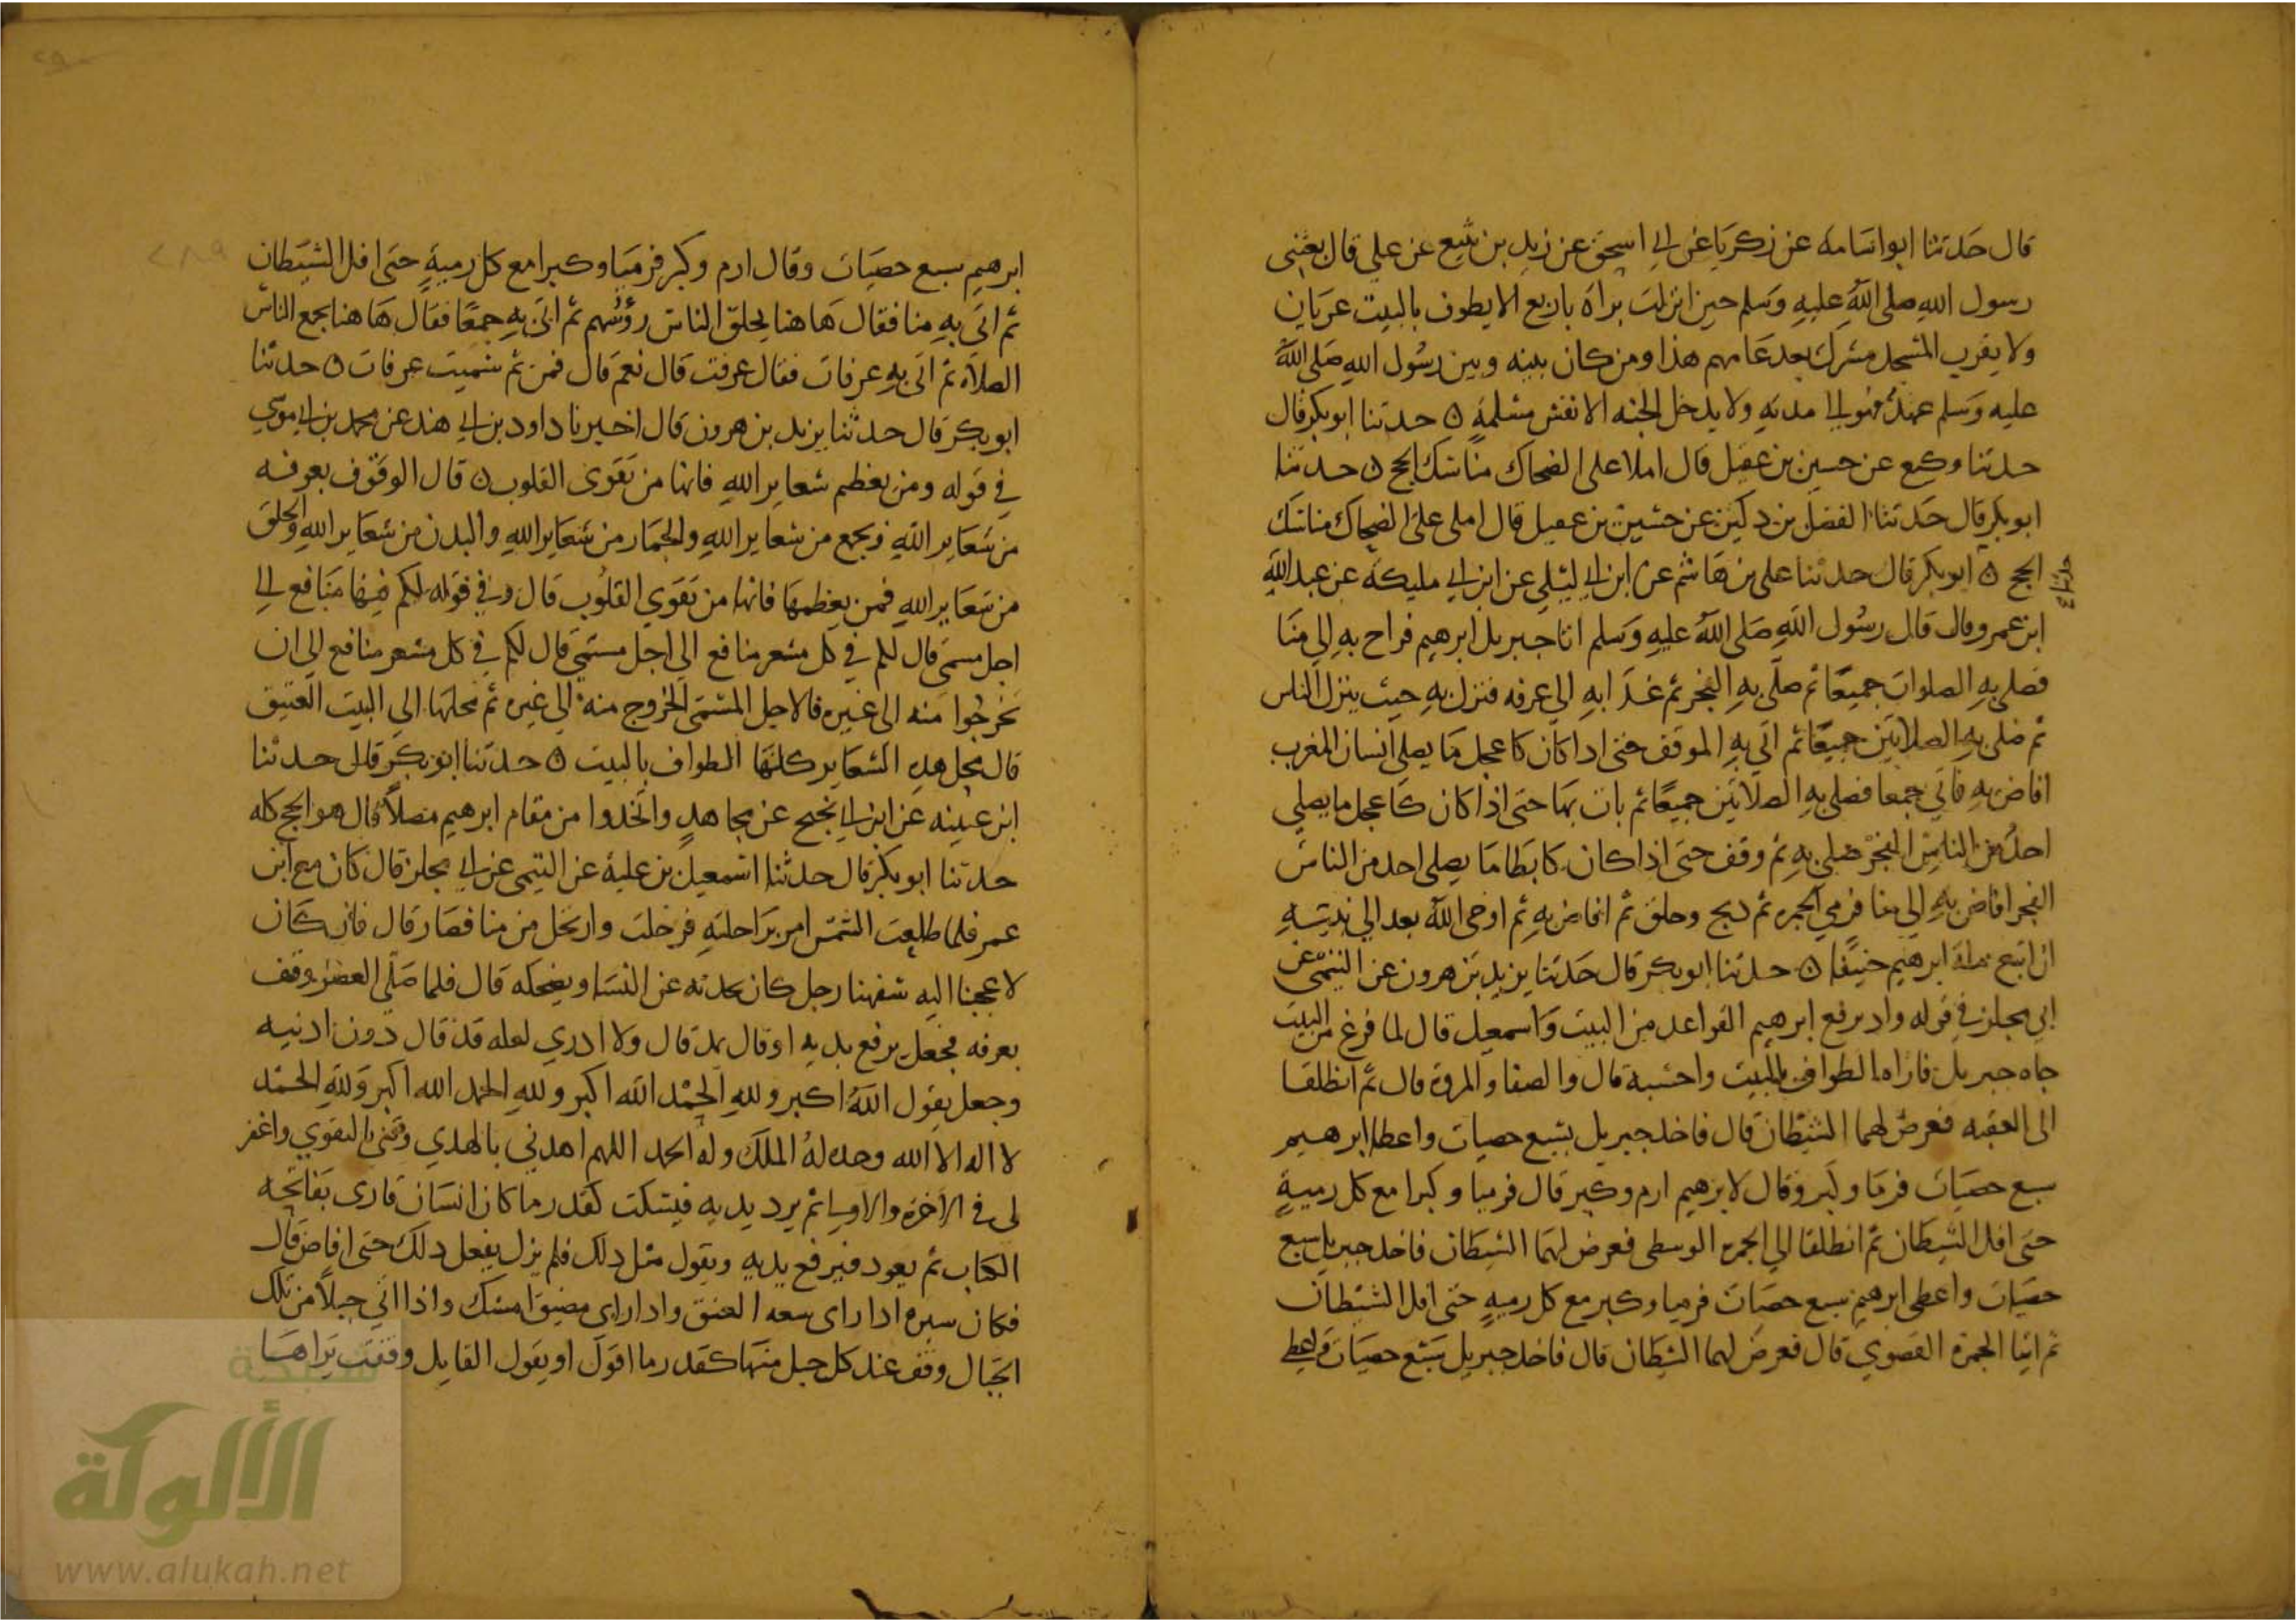 قال حدثنا ابو اسامة عن زكريا عن ابي اسحق عن زيد بن يثيع عن علي قال بعثني
رسول الله صلى الله عليه وسلم حين انزلت براة باربع الا يطوف بالبيت عريان
ولا يقرب المسجد مشرك بعد عامهم هذا ومن كان بينه وبين رسول الله صلى الله
عليه وسلم عهد فهو الى مدته ولا يدخل الجنه الا نفس مسلمة ه حدثنا ابو بكر قال
حدثنا وكيع عن حسين بن عقيل قال املا على الضحاك مناسك الحج ه حدثنا
ابو بكر قال حدثنا الفضل بن دكين عن حسين بن عقيل قال املى على الضحاك مناسك
الحج ه ابو بكر قال حدثنا على بن هاشم عن ابن ابي ليلى عن ابن ابي مليكه عن عبد الله
حدثنا
ابن عمرو قال قال رسول الله صلى الله عليه وسلم اتا جبريل ابرهيم فراح به الى منا
فصلى به الصلوات جميعا ثم صلى به الفجر ثم غدا به الى عرفه فنزل به حيث ينزل الناس
ثم صلى به الصلاتين جميعا ثم اتى به الموقف حتى اذا كان كاعجل ما يصلي انسان المغرب
افاض به فاتي جمعا فصلى به الصلاتين جميعا ثم بات بها حتى اذا كان كاعجل ما يصلي
احد من الناس الفجر صلى به ثم وقف حتى اذا كان كابطا ما يصلى احد من الناس
الفجر افاض به الى منا فرمي الجمره ثم ذبح وحلق ثم افاض به ثم اوحى الله بعد الى نبيه
ان اتبع ملة ابرهيم حنيفا ه حدثنا ابو بكر قال حدثنا يزيد بن هرون عن التيمي عن
ابي مجلز في قوله واذ يرفع ابرهيم القواعد من البيت واسمعيل قال لما فرغ من البيت
جاه جبريل فاراه الطواف بالبيت واحسبه قال والصفا والمروة قال ثم انطلقا
الى العقبه فعرض لهما الشيطان قال فاخذ جبريل سبع حصيات واعطا ابرهيم
سبع حصيات فرما وكبر وقال لابرهيم ارم وكبر قال فرميا وكبرا مع كل رمية
حتى افل الشيطان ثم انطلقا الى الجمره الوسطى فعرض لهما الشيطان فاخذ جبريل سبع
حصيات واعطى ابرهيم سبع حصيات فرميا وكبر مع كل رمية حتى افل الشيطان
ثم اتيا الجمرة القصوي قال فعرض لهما الشيطان قال فاخذ جبريل سبع حصيات واعطى
ابرهيم سبع حصيات وقال ارم وكبر فرميا وكبرا مع كل رمية حتى افل الشيطان
ثم اتى به منا فقال هاهنا يحلق الناس رؤسهم ثم اتى به جمعا فقال هاهنا يجمع الناس
الصلاه ثم اتى به عرفات فقال عرفت قال نعم قال فمن ثم سميت عرفات ه حدثنا
ابو بكر قال حدثنا يزيد بن هرون قال اخبرنا داود بن ابي هند عن محمد بن ابي موسي
في قوله ومن يعظم شعاير الله فانها من تقوى القلوب ه قال الوقوف بعرفه
من شعاير الله وبجمع من شعاير الله والجمار من شعاير الله والبدن من شعاير الله والحلق
من شعاير الله فمن يعظمها فانها من تقوي القلوب قال وفي قوله لكم فيها منافع الى
اجل مسمى قال لكم في كل مشعر منافع الى اجل مسمى قال لكم في كل مشعر منافع الى ان
تخرجوا منه الى غيره فالاجل المسمى الخروج منه الى غيره ثم محلها الى البيت العتيق
قال محل هذه الشعاير كلها الطواف بالبيت ه حدثنا ابو بكر قال حدثنا
ابن عيينه عن ابن ابي نجيح عن مجاهد واتخذوا من مقام ابرهيم مصلا قال هو الحج كله
حدثنا ابو بكر قال حدثنا اسمعيل بن علية عن التيمي عن ابي مجلز قال كان مع ابن
عمر فلما طلعت الشمس امر براحلته فرحلت وارتحل من منا فصار قال فان كان
لاعجبنا اليه سفهنا رجل كان يحدثه عن النسا ويضحكه قال فلما صلى العصر وقف
بعرفه فجعل يرفع يديه او قال يمد قال ولا ادري لعله قد قال دون اذنيه
وجعل يقول الله اكبر ولله الحمد الله اكبر ولله الحمد الله اكبر ولله الحمد
لا اله الا الله وحده له الملك وله الحمد اللهم اهدني بالهدي وقني بالتقوي واغفر
لى في الاخرة والاولى ثم يرد يديه فيسكت كقدر ما كان انسان قارى بفاتحه
الكتاب ثم يعود فيرفع يديه ويقول مثل ذلك فلم يزل يفعل ذلك حتى افاض قال
فكان سيره اذا راى سعه العنق واذا راى مضيقا امسك واذا اتي جبلا من تلك
الجبال وقف عند كل جبل منها كقدر ما اقول او يقول القايل وقفت يداها
شبكة
الألوكة
www.alukah.net